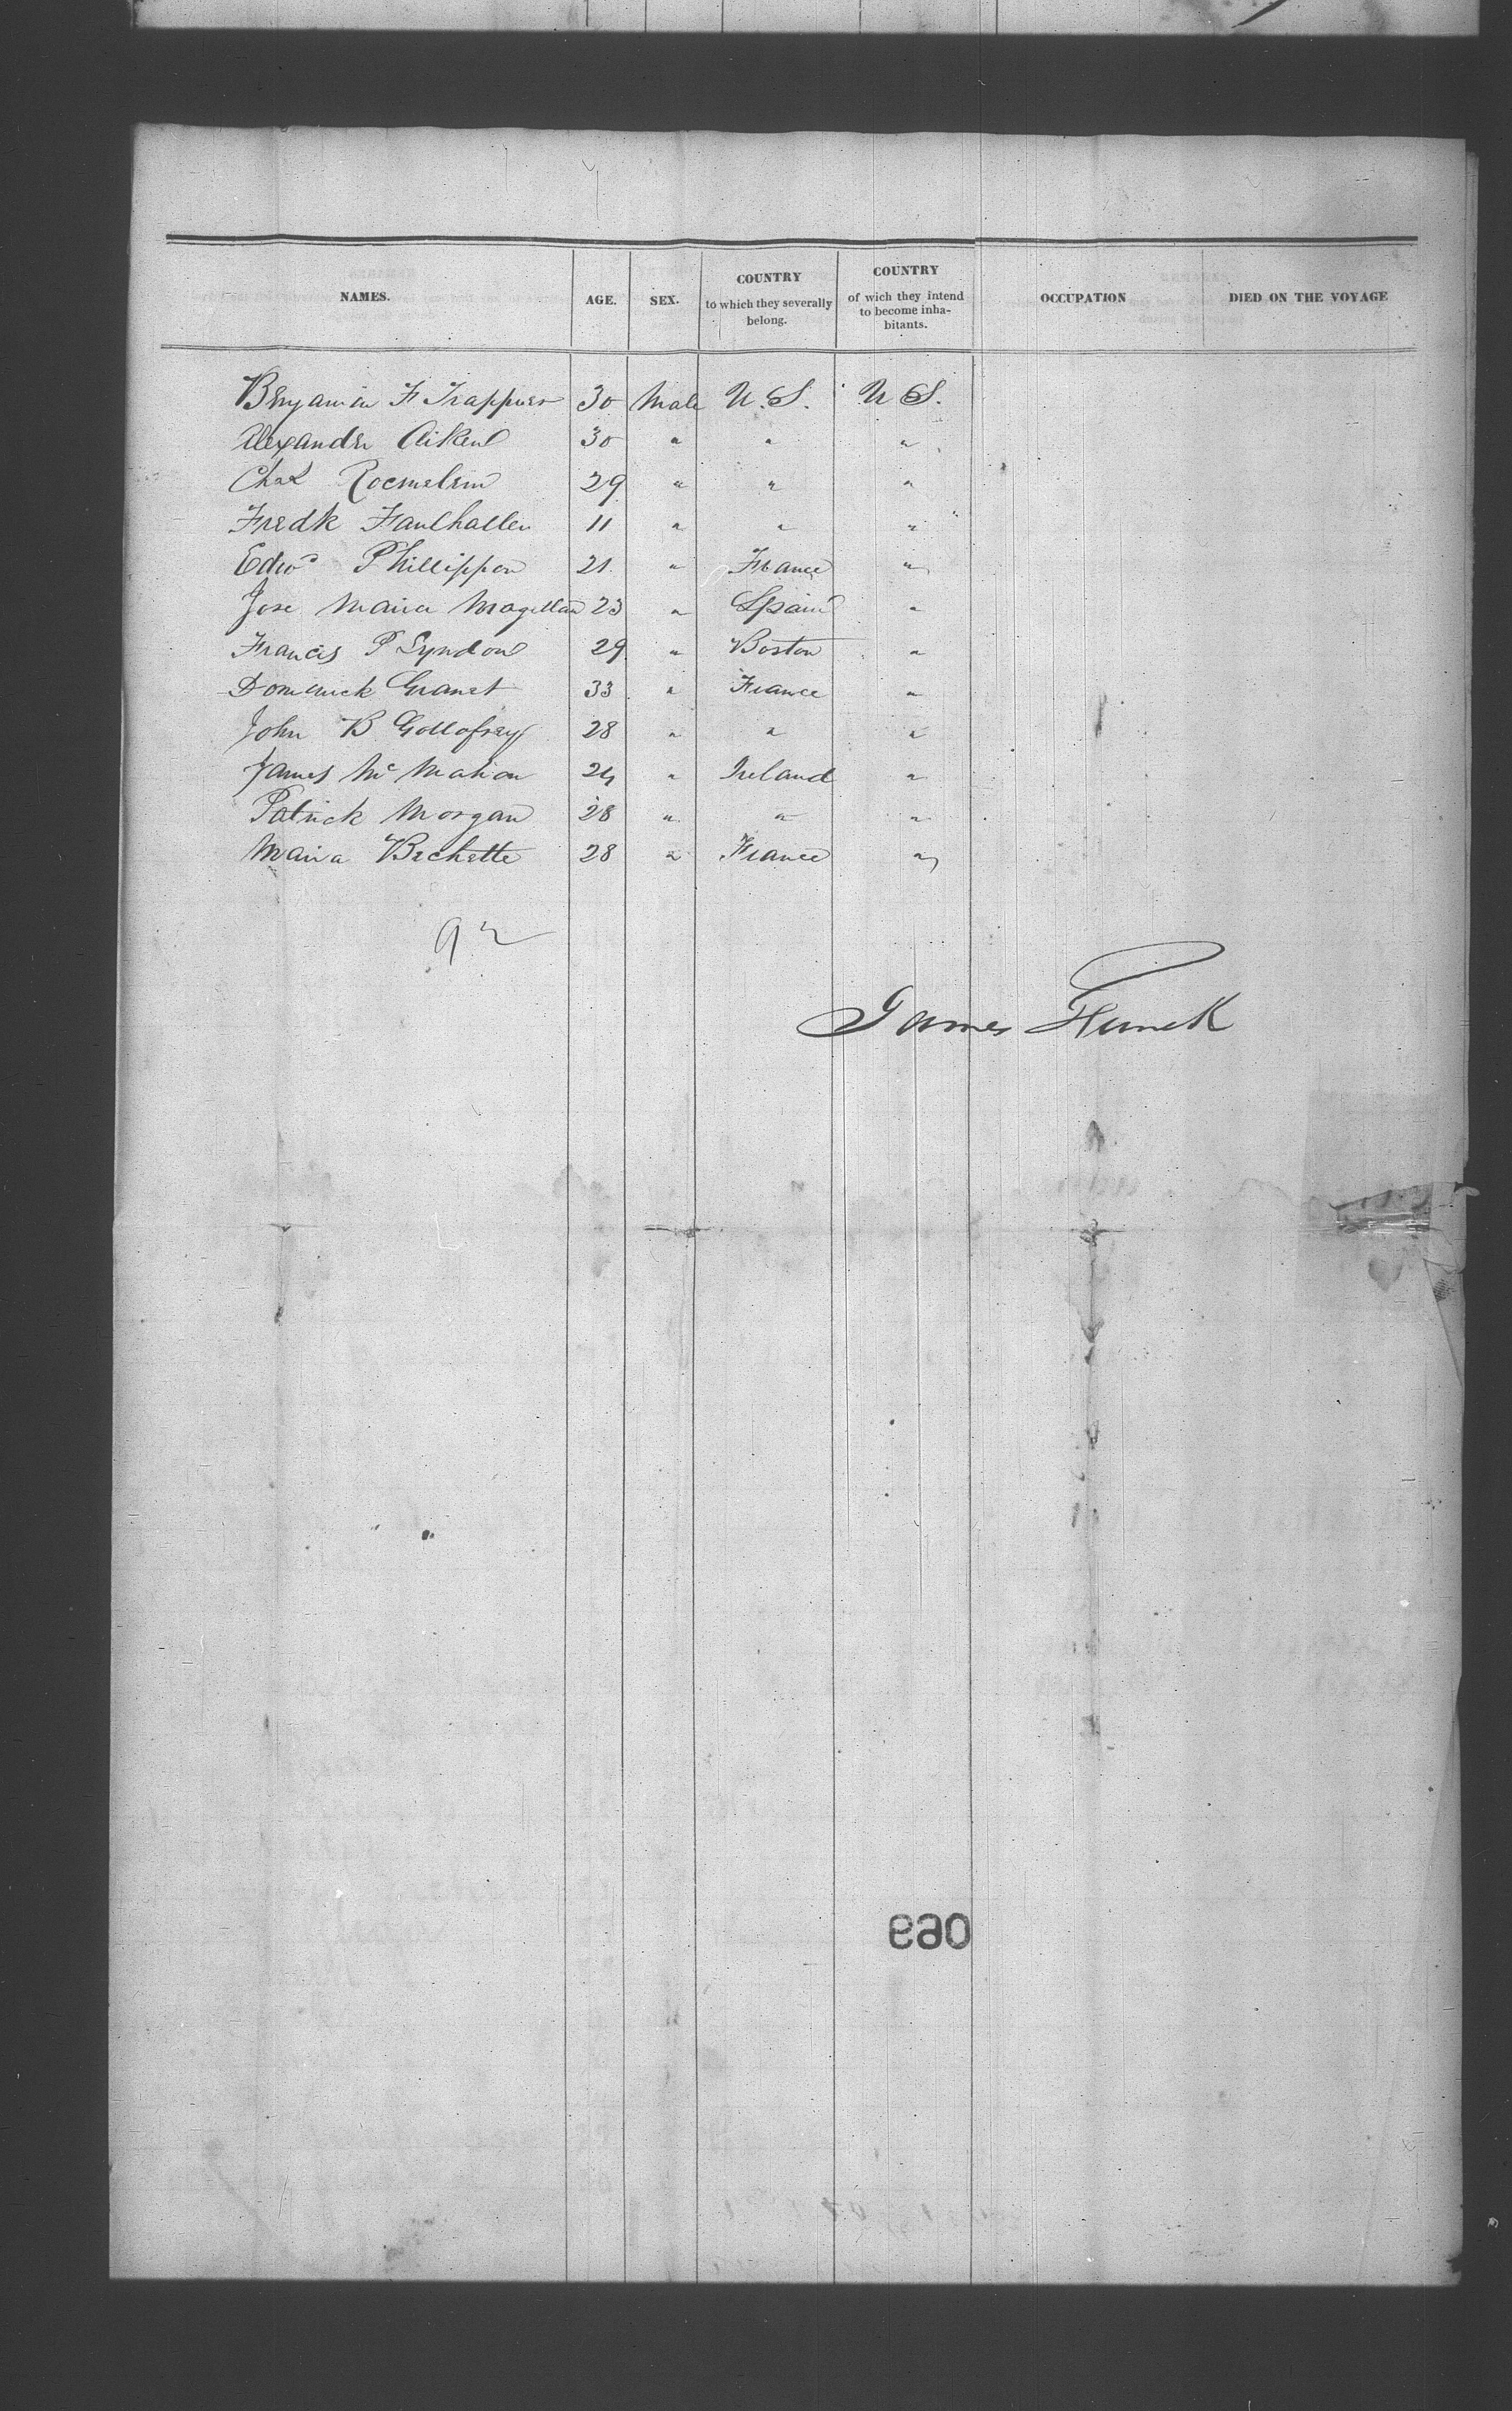 NAMES. AGE. SEX. COUNTRY to which they severally belong. COUNTRY of wich they intend to become inhabitants. OCCUPATION DIED ON THE VOYAGE
Benjamin F Trappues 30 Male U.S. U S.
Alexander Aiken 30 " " "
Chas 29 " " "
Fredk Faulhallen 11 " " "
Edwd Phillippon 21 " France "
Jose Maria Magellan 23 " Spain "
Francis P Lyndon 29 " Boston "
Domenick Granet 33 " France "
John B Gollofrey 28 " " "
James Mc Mahon 24 " Ireland "
Patrick Morgan 28 " " "
Maria Bechette 28 " France "
92
James Funck
069